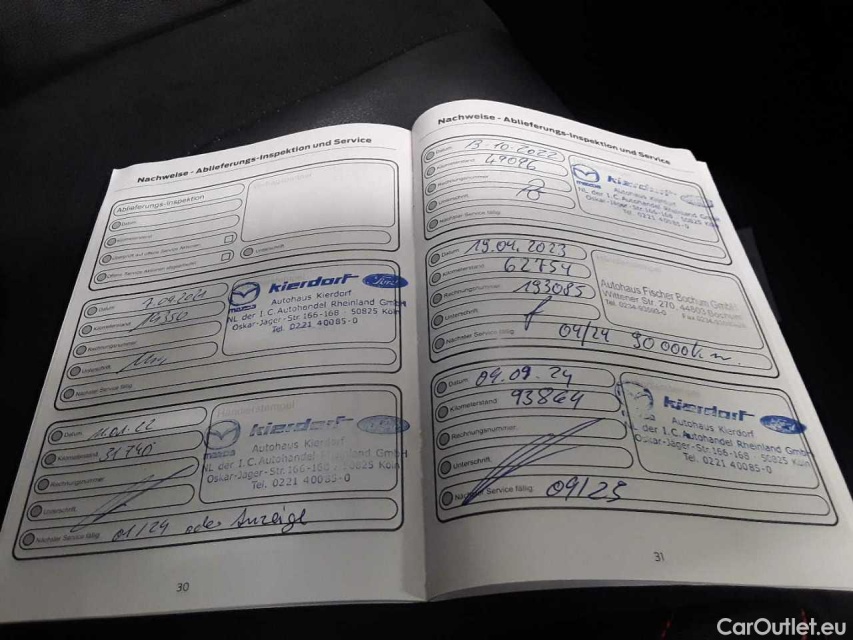 Nachweise - Ablieferungs-Inspektion und Service
Ablieferungs-Inspektion
Datum
Unterschrift
Datum
Kilometerstand
Rechnungsnummer
Unterschrift
Nächster Service fällig
mazda kierdorf Ford
Autohaus Kierdorf
NL der I.C. Autohandel Rheinland GmbH
Oskar-Jäger-Str. 166-168 · 50825 Köln
Tel. 0221 40085-0
Datum 11.01.22
Kilometerstand 31740
Rechnungsnummer
Unterschrift
Nächster Service fällig 01/24 oder Anzeige
Händlerstempel
mazda kierdorf Ford
Autohaus Kierdorf
NL der I.C. Autohandel Rheinland GmbH
Oskar-Jäger-Str. 166-168 · 50825 Köln
Tel. 0221 40085-0
30
Nachweise - Ablieferungs-Inspektion und Service
Datum 13.10.2022
Kilometerstand 49096
Rechnungsnummer
Unterschrift
Nächster Service fällig
mazda kierdorf
Autohaus Kierdorf
NL der I.C. Autohandel Rheinland GmbH
Oskar-Jäger-Str. 166-168 · 50825 Köln
Tel. 0221 40085-0
Datum 19.04.2023
Kilometerstand 62754
Rechnungsnummer 193085
Unterschrift
Nächster Service fällig 04/24 90000km.
Autohaus Fischer Bochum GmbH
Wittener Str. 270, 44803 Bochum
Datum 04.09.24
Kilometerstand 93864
Rechnungsnummer
Unterschrift
Nächster Service fällig 09/25
mazda kierdorf Ford
Autohaus Kierdorf
NL der I.C. Autohandel Rheinland GmbH
Oskar-Jäger-Str. 166-168 · 50825 Köln
Tel. 0221 40085-0
31
CarOutlet.eu